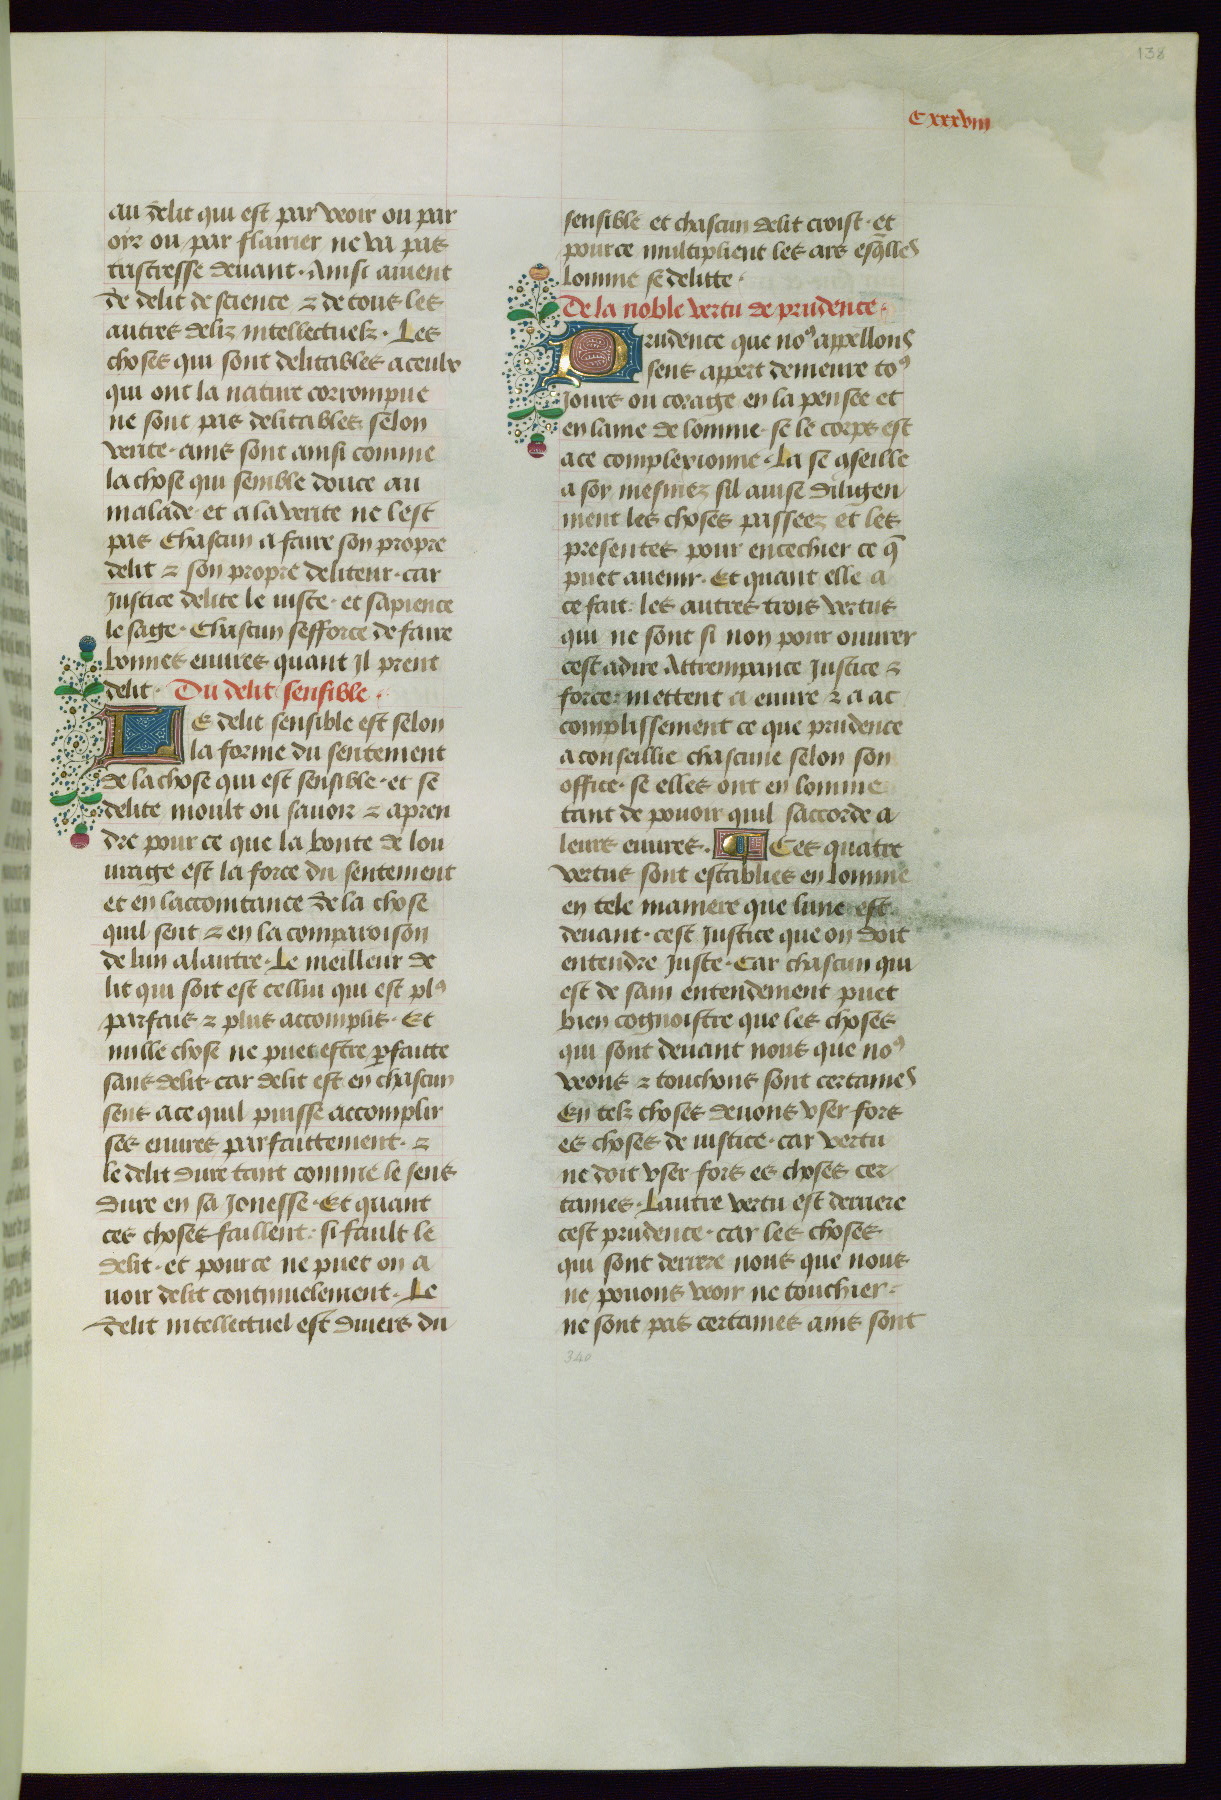 138
Cxxxviii
au delit qui est par veoir ou par
oir ou par flairier ne va pas
tristresse deuant · Ainsi auient
de delit de science ⁊ de tous les
autres deliz intellectuelz · Les
choses qui sont delitables a ceulx
qui ont la nature corrompue
ne sont pas delitables selon
verite · ains sont ainsi comme
la chose qui semble douce au
malade · et a la verite ne lest
pas Chascun a faire son propre
delit ⁊ son propre deliteur · car
Justice delite le iuste · et sapience
le sage · Chascun sefforce de faire
bonnes euures quant Il prent
delit · Du delit sensible ·
LE delit sensible est selon
la forme du sentement
de la chose qui est sensible · et se
delite moult ou sauoir ⁊ apren
dre pour ce que la bonte de lou
urage est la force du sentement
et en laccointance de la chose
quil sent ⁊ en la comparoison
de lun a lautre · Le meilleur de
lit qui soit est cellui qui est plꝰ
parfait ⁊ plus accomplis · Et
nulle chose ne puet estre ꝑfaitte
sans delit · car delit est en chascun
sens a ce quil puisse accomplir
ses euures parfaittement · ⁊
le delit dure tant comme le sens
dure en sa Jonesse · Et quant
ces choses faillent : si fault le
delit · et pour ce ne puet on a
uoir delit continuelement · Le
delit intellectuel est diuers du
sensible et chascun delit croist · et
pour ce multiplient les ars esq̄lles
lomme se delitte ·
De la noble vertu de prudence ·
Prudence que noꝰ appellons
sens appert demeure toꝰ
Jours ou corage en la pensee et
en lame de lomme · se le corps est
a ce complexionne · La se ꝯseille
a sor mesmez sil auise diligen
ment les choses passeez et les
presentes pour encechier ce q̄
puet auenir · Et quant elle a
ce fait : les autres trois vertus
qui ne sont si non pour ouurer
cest a dire Attrempance Justice ⁊
force : mettent a euure ⁊ a ac
complissement ce que prudence
a conseillie chascune selon son
office · se elles ont en lomme
tant de pouoir quil saccorde a
leurs euures · ¶ Ces quatre
vertus sont establies en lomme
en tele maniere que lune est
deuant · cest Justice que on doit
entendre Juste · Car chascun qui
est de sain entendement puet
bien cognoistre que les choses
qui sont deuant nous que noꝰ
veons ⁊ touchons sont certaines
En telz choses deuons vser fors
es choses de iustice · car vertu
ne doit vser fors es choses cer
taines · Lautre vertu est derriere
cest prudence · car les choses
qui sont derrere nous que nous
ne pouons veoir ne touchier ·
ne sont pas certaines ains sont
340